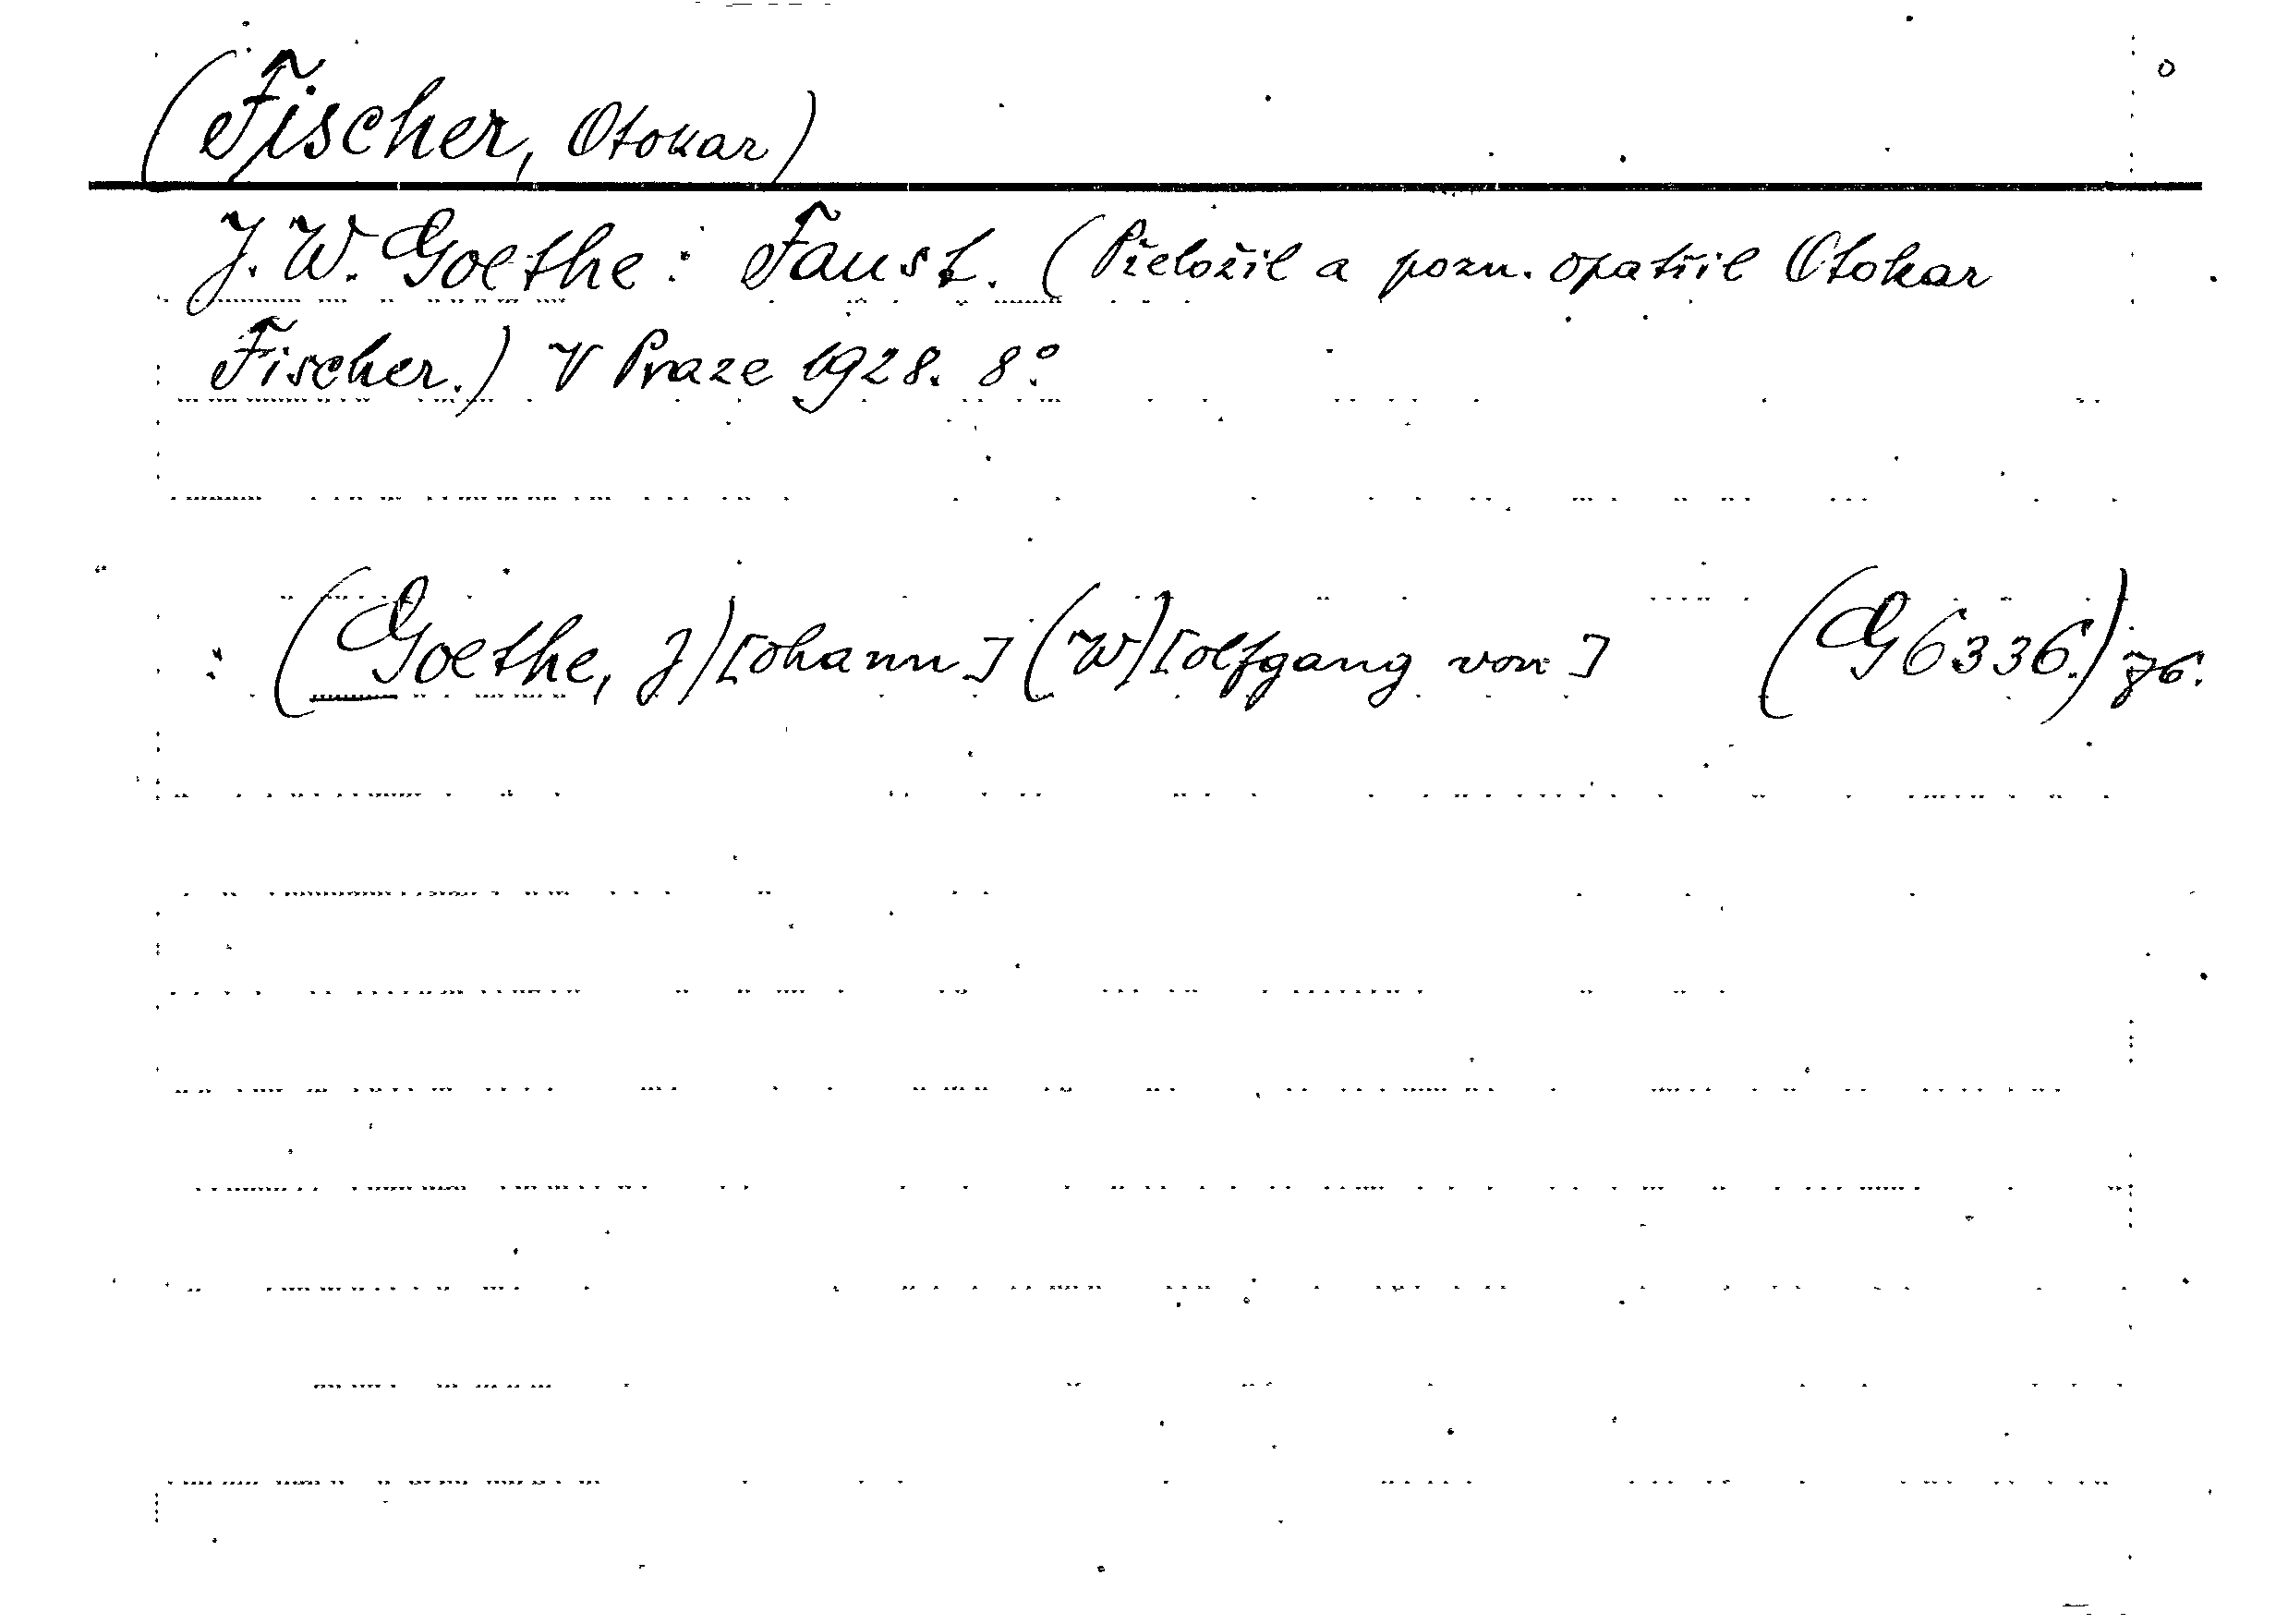 (Fischer, Otokar)
J. W. Goethe: Faust. (Přeložil a pozn. opatřil Otokar
Fischer.) V Praze 1928. 8°.
: (Goethe, J)[ohann] (W)[olfgang von] (G 6336.)